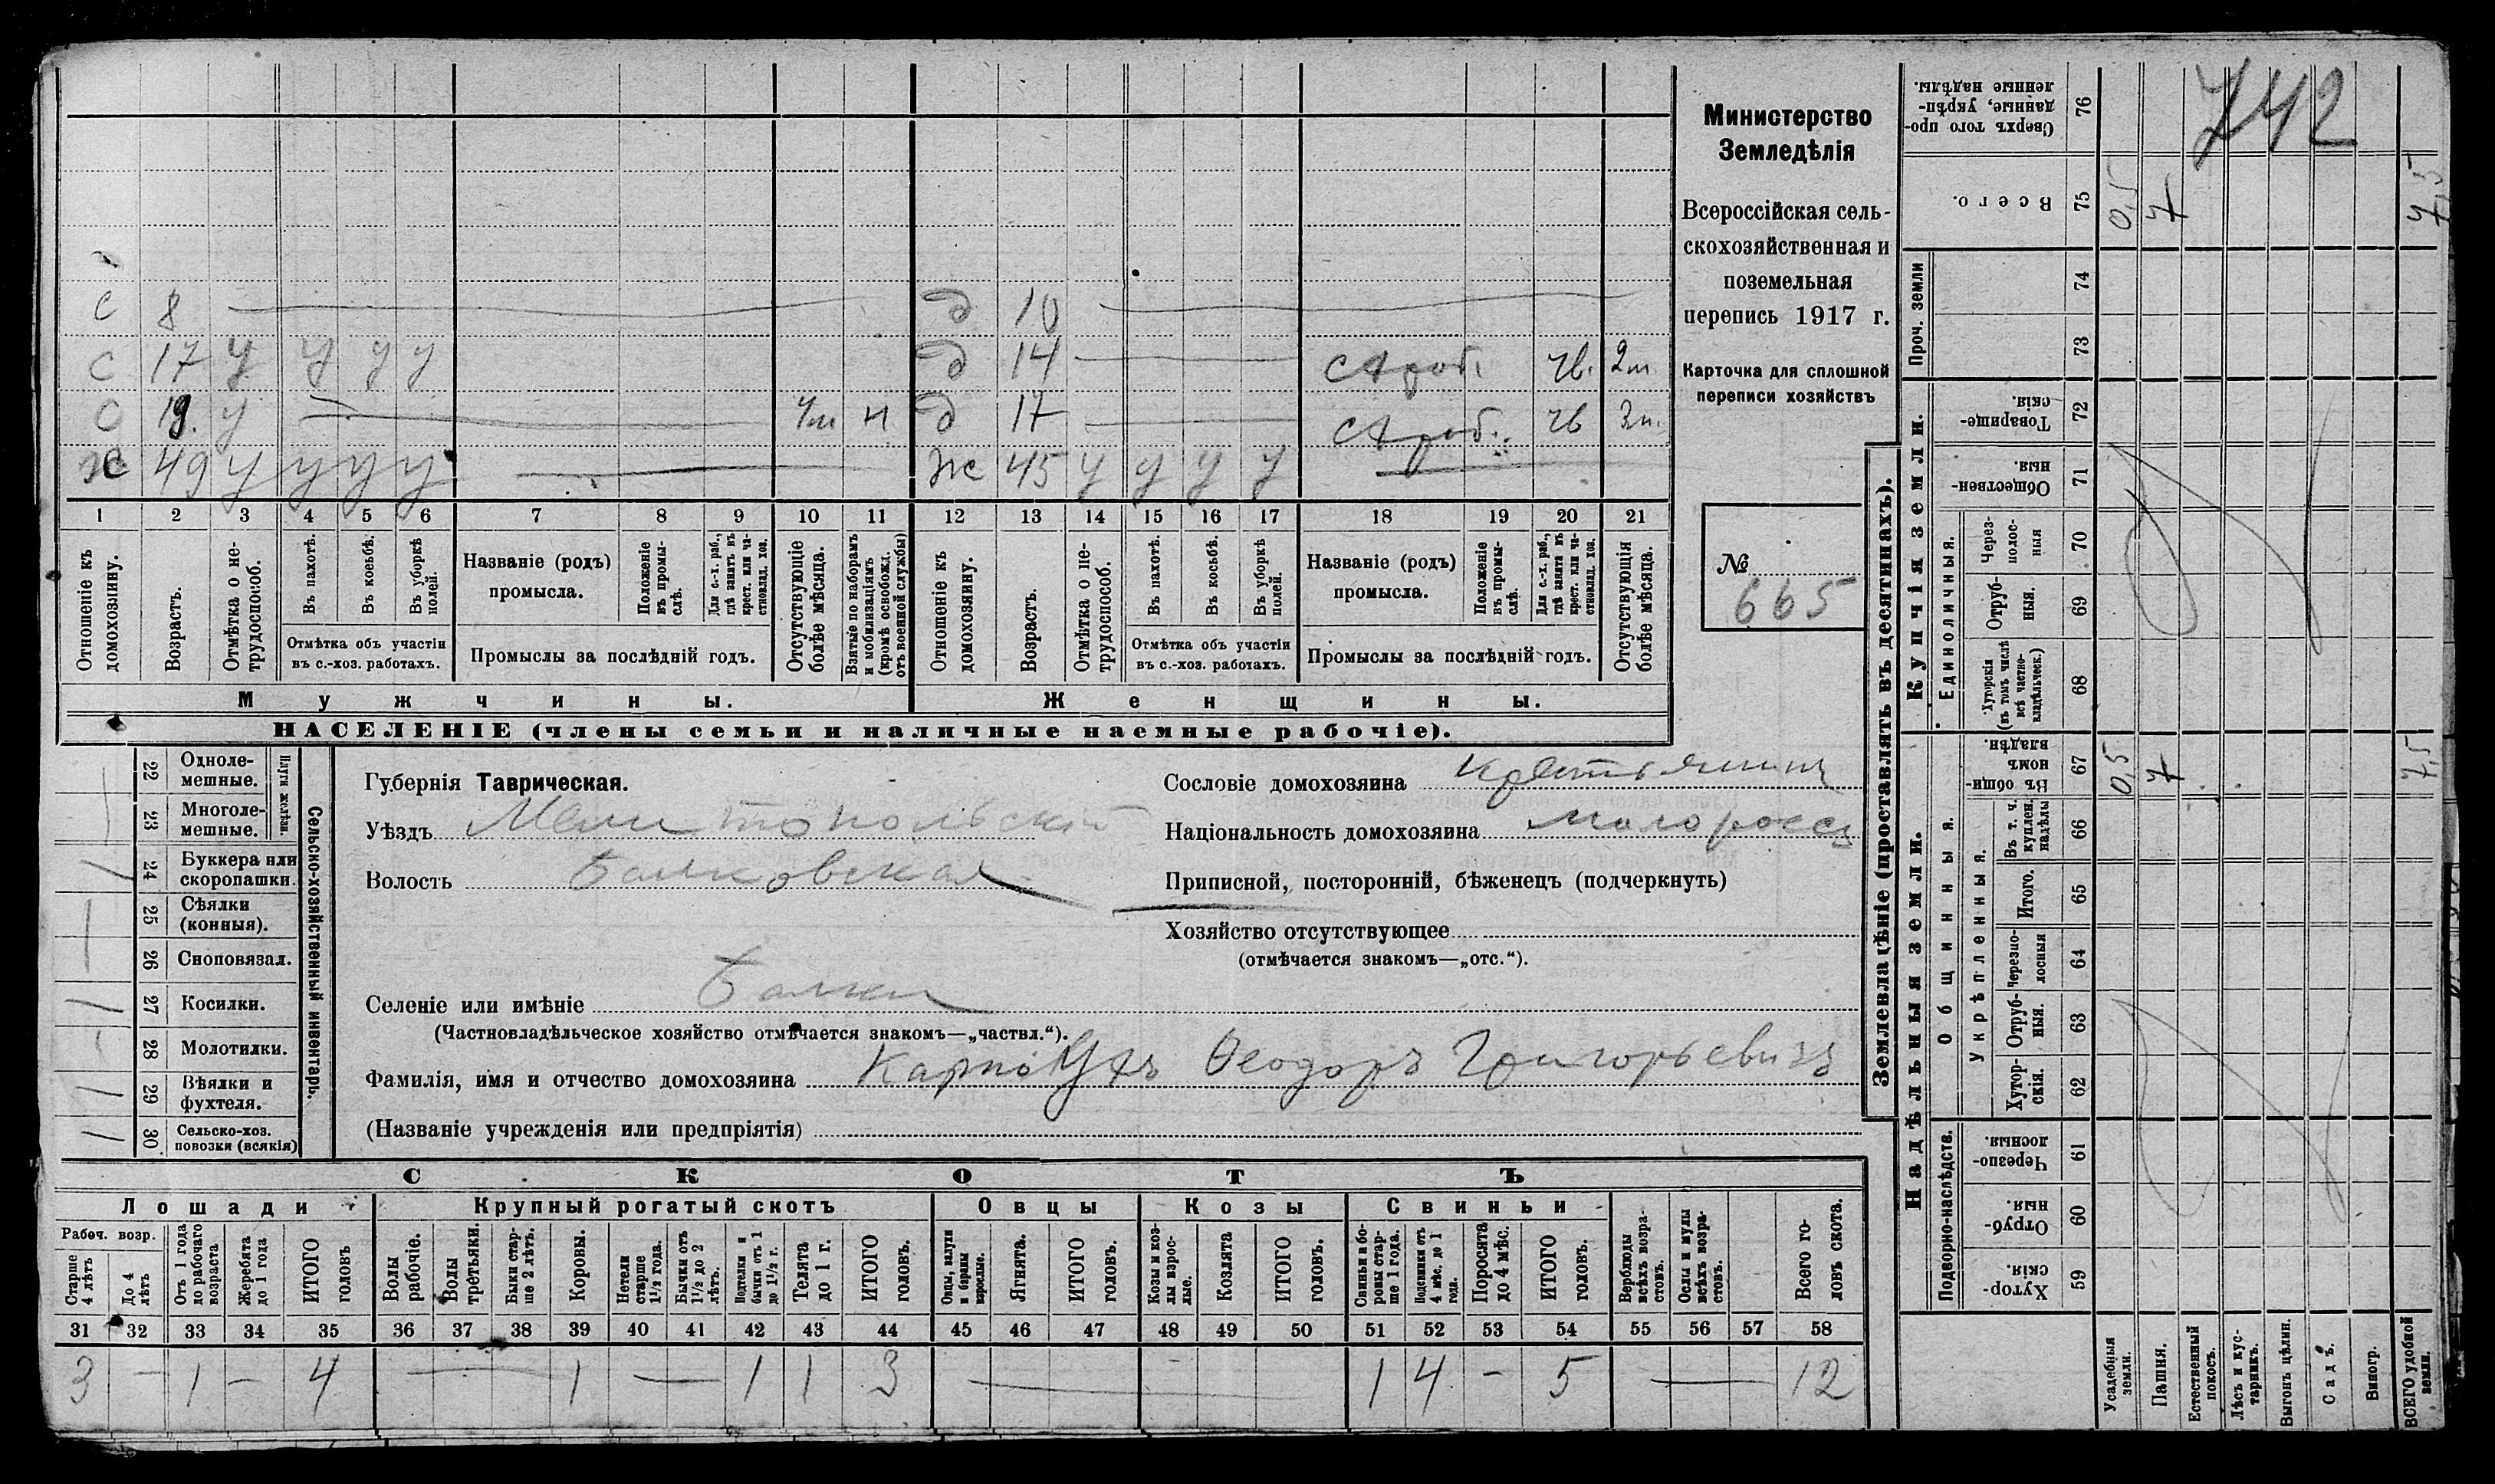 Министерство
Земледѣлія
Всероссійская сель-
скохозяйственная и
поземельная
перепись 1917 г.
Карточка для сплошной
переписи хозяйствъ
№
665
742
С 8 — Д 10 —
С 17 У У У У Д 14 — 2м
С 19. У — Н Д 17 — 3м.
Ж 49 У У У У — Ж 45 У У У У —
1 2 3 4 5 6 7 8 9 10 11 12 13 14 15 16 17 18 19 20 21
Отношеніе къ домохозяину.
Возрастъ.
Отмѣтка о не-трудоспособ.
Въ пахотѣ.
Въ косьбѣ.
Въ уборкѣ полей.
Отмѣтка объ участіи въ с.-хоз. работахъ.
Названіе (родъ) промысла.
Положеніе въ промы-слѣ.
Для с.-х. раб., гдѣ занятъ въ крест. или ча-стновлад. хоз.
Промыслы за послѣдній годъ.
Отсутствующіе болѣе мѣсяца.
Взятые по наборамъ и мобилизаціямъ (кромѣ освобожд. отъ военной службы)
Отношеніе къ домохозяину.
Возрастъ.
Отмѣтка о не-трудоспособ.
Въ пахотѣ.
Въ косьбѣ.
Въ уборкѣ полей.
Отмѣтка объ участіи въ с.-хоз. работахъ.
Названіе (родъ) промысла.
Положеніе въ промы-слѣ.
Для с.-х. раб., гдѣ занята въ крест. или ча-стновлад. хоз.
Промыслы за послѣдній годъ.
Отсутствующія болѣе мѣсяца.
Мужчины. Женщины.
НАСЕЛЕНІЕ (члены семьи и наличные наемные рабочіе).
Сельско-хозяйственный инвентарь.
Плуги желѣзн.
22 Одноле-мешные.
23 Многоле-мешные.
24 Буккера или скоропашки.
25 Сѣялки (конныя).
26 Сноповязал.
27 Косилки.
28 Молотилки.
29 Вѣялки и фухтеля.
30 Сельско-хоз. повозки (всякія)
Губернія Таврическая.
Уѣздъ Мелитопольскій
Волость Балковская
Селеніе или имѣніе Балки
(Частновладѣльческое хозяйство отмѣчается знакомъ—„частвл.“).
Фамилія, имя и отчество домохозяина Ѳеодоръ Григорьевичъ
(Названіе учрежденія или предпріятія)
Сословіе домохозяина крестьянинъ
Національность домохозяина малороссъ
Приписной, посторонній, бѣженецъ (подчеркнуть)
Хозяйство отсутствующее
(отмѣчается знакомъ—„отс.“).
СКОТЪ
Лошади Крупный рогатый скотъ Овцы Козы Свиньи
Рабоч. возр.
Старше 4 лѣтъ
До 4 лѣтъ
Отъ 1 года до рабочаго возраста
Жеребята до 1 года
ИТОГО головъ
Волы рабочіе.
Волы третьяки.
Быки стар-ше 2 лѣтъ.
Коровы.
Нетели старше 1½ года.
Бычки отъ 1½ до 2 лѣтъ.
Подтелки и бычки отъ 1 до 1½ г.
Телята до 1 г.
ИТОГО головъ.
Овцы, валухи и бараны взрослые.
Ягнята.
ИТОГО головъ.
Козы и коз-лы взрос-лые.
Козлята
ИТОГО головъ.
Свиньи и бо-ровы стар-ше 1 года.
Подсвинки отъ 4 мѣс. до 1 года.
Поросята до 4 мѣс.
ИТОГО головъ.
Верблюды всѣхъ возра-стовъ.
Ослы и мулы всѣхъ возра-стовъ.
Всего го-ловъ скота.
31 32 33 34 35 36 37 38 39 40 41 42 43 44 45 46 47 48 49 50 51 52 53 54 55 56 57 58
3 — 1 — 4 — 1 — 1 1 3 — 1 4 - 5 — 12
Землевладѣніе (проставлять въ десятинахъ).
Надѣльныя земли. Купчія земли.
Подворно-наслѣдств.
Общинныя.
Укрѣпленныя.
Единоличныя.
Проч. земли
59 Хутор-скія.
60 Отруб-ныя.
61 Черезпо-лосныя.
62 Хутор-скія.
63 Отруб-ныя.
64 Черезпо-лосныя
65 Итого.
66 Въ т. ч. куплен. надѣлы
67 Въ общи-номъ владѣн. 0,5 7 7,5
68 Хуторскія (въ томъ числѣ всѣ частно-владѣльческ.)
69 Отруб-ныя.
70 Через-полос-ныя
71 Обществен-ныя.
72 Товарище-скія.
73
74
75 Всего. 0,5 7 7,5
76 Сверхъ того про-данные, укрѣп-ленные надѣлы.
Усадебныя земли.
Пашня.
Естественный покосъ.
Лѣсъ и кус-тарникъ.
Выгонъ цѣлин.
Садъ.
Виногр.
ВСЕГО удобной земли.